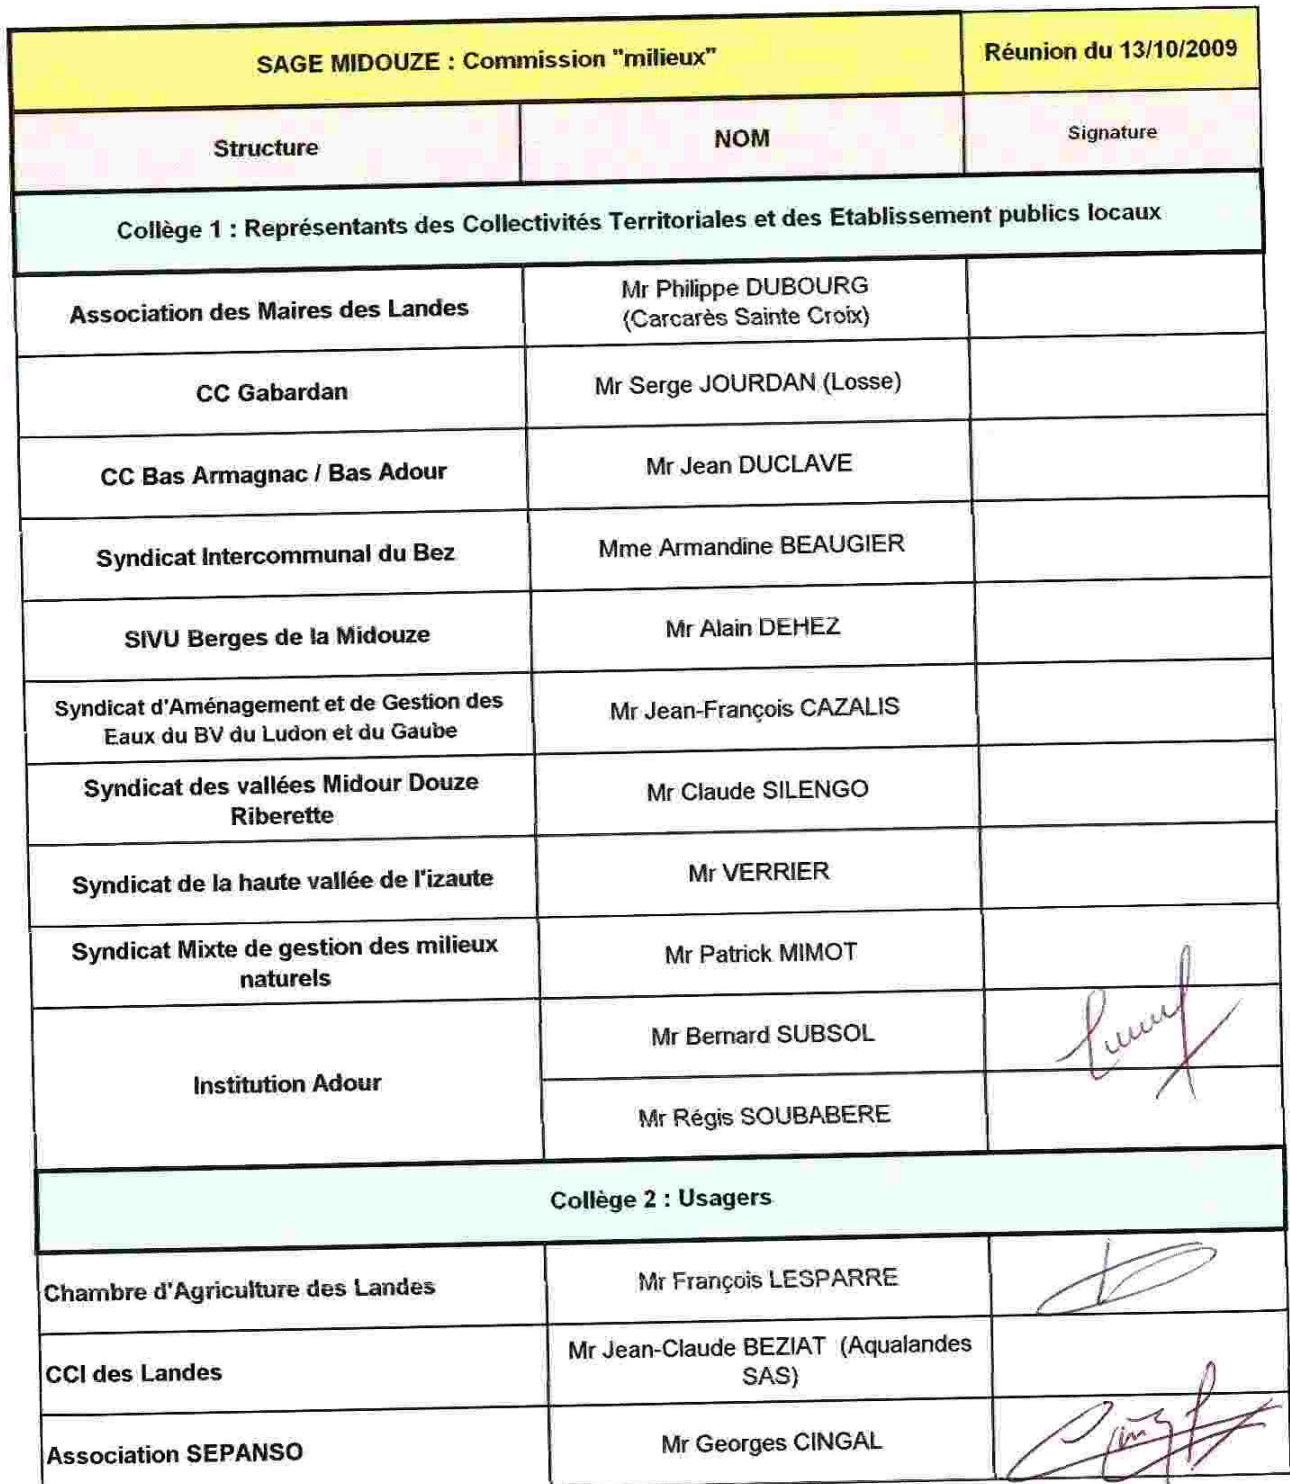 SAGE MIDOUZE : Commission "milieux"
Réunion du 13/10/2009
Structure
NOM
Signature
Collège 1 : Représentants des Collectivités Territoriales et des Etablissement publics locaux
Association des Maires des Landes
Mr Philippe DUBOURG
(Carcarès Sainte Croix)
CC Gabardan
Mr Serge JOURDAN (Losse)
CC Bas Armagnac / Bas Adour
Mr Jean DUCLAVE
Syndicat Intercommunal du Bez
Mme Armandine BEAUGIER
SIVU Berges de la Midouze
Mr Alain DEHEZ
Syndicat d'Aménagement et de Gestion des
Eaux du BV du Ludon et du Gaube
Mr Jean-François CAZALIS
Syndicat des vallées Midour Douze
Riberette
Mr Claude SILENGO
Syndicat de la haute vallée de l'izaute
Mr VERRIER
Syndicat Mixte de gestion des milieux
naturels
Mr Patrick MIMOT
Institution Adour
Mr Bernard SUBSOL
Mr Régis SOUBABERE
Collège 2 : Usagers
Chambre d'Agriculture des Landes
Mr François LESPARRE
CCI des Landes
Mr Jean-Claude BEZIAT (Aqualandes
SAS)
Association SEPANSO
Mr Georges CINGAL